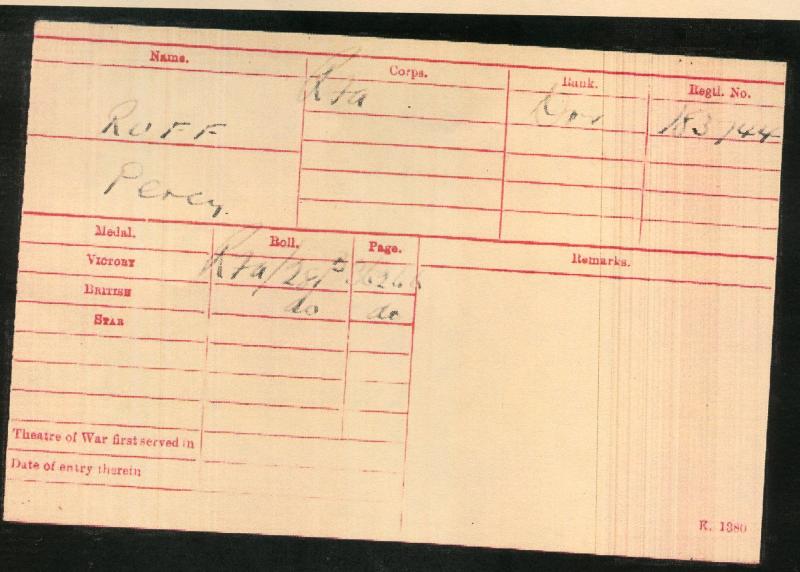 Name.
Corps.
Rank.
Regtl. No.
RUFF
RFA
Dvr
183744
Percy.
Medal.
Roll.
Page.
Remarks.
VICTORY
RFA/281B
36266
BRITISH
do
do
STAR
Theatre of War first served in
Date of entry therein
K. 1380